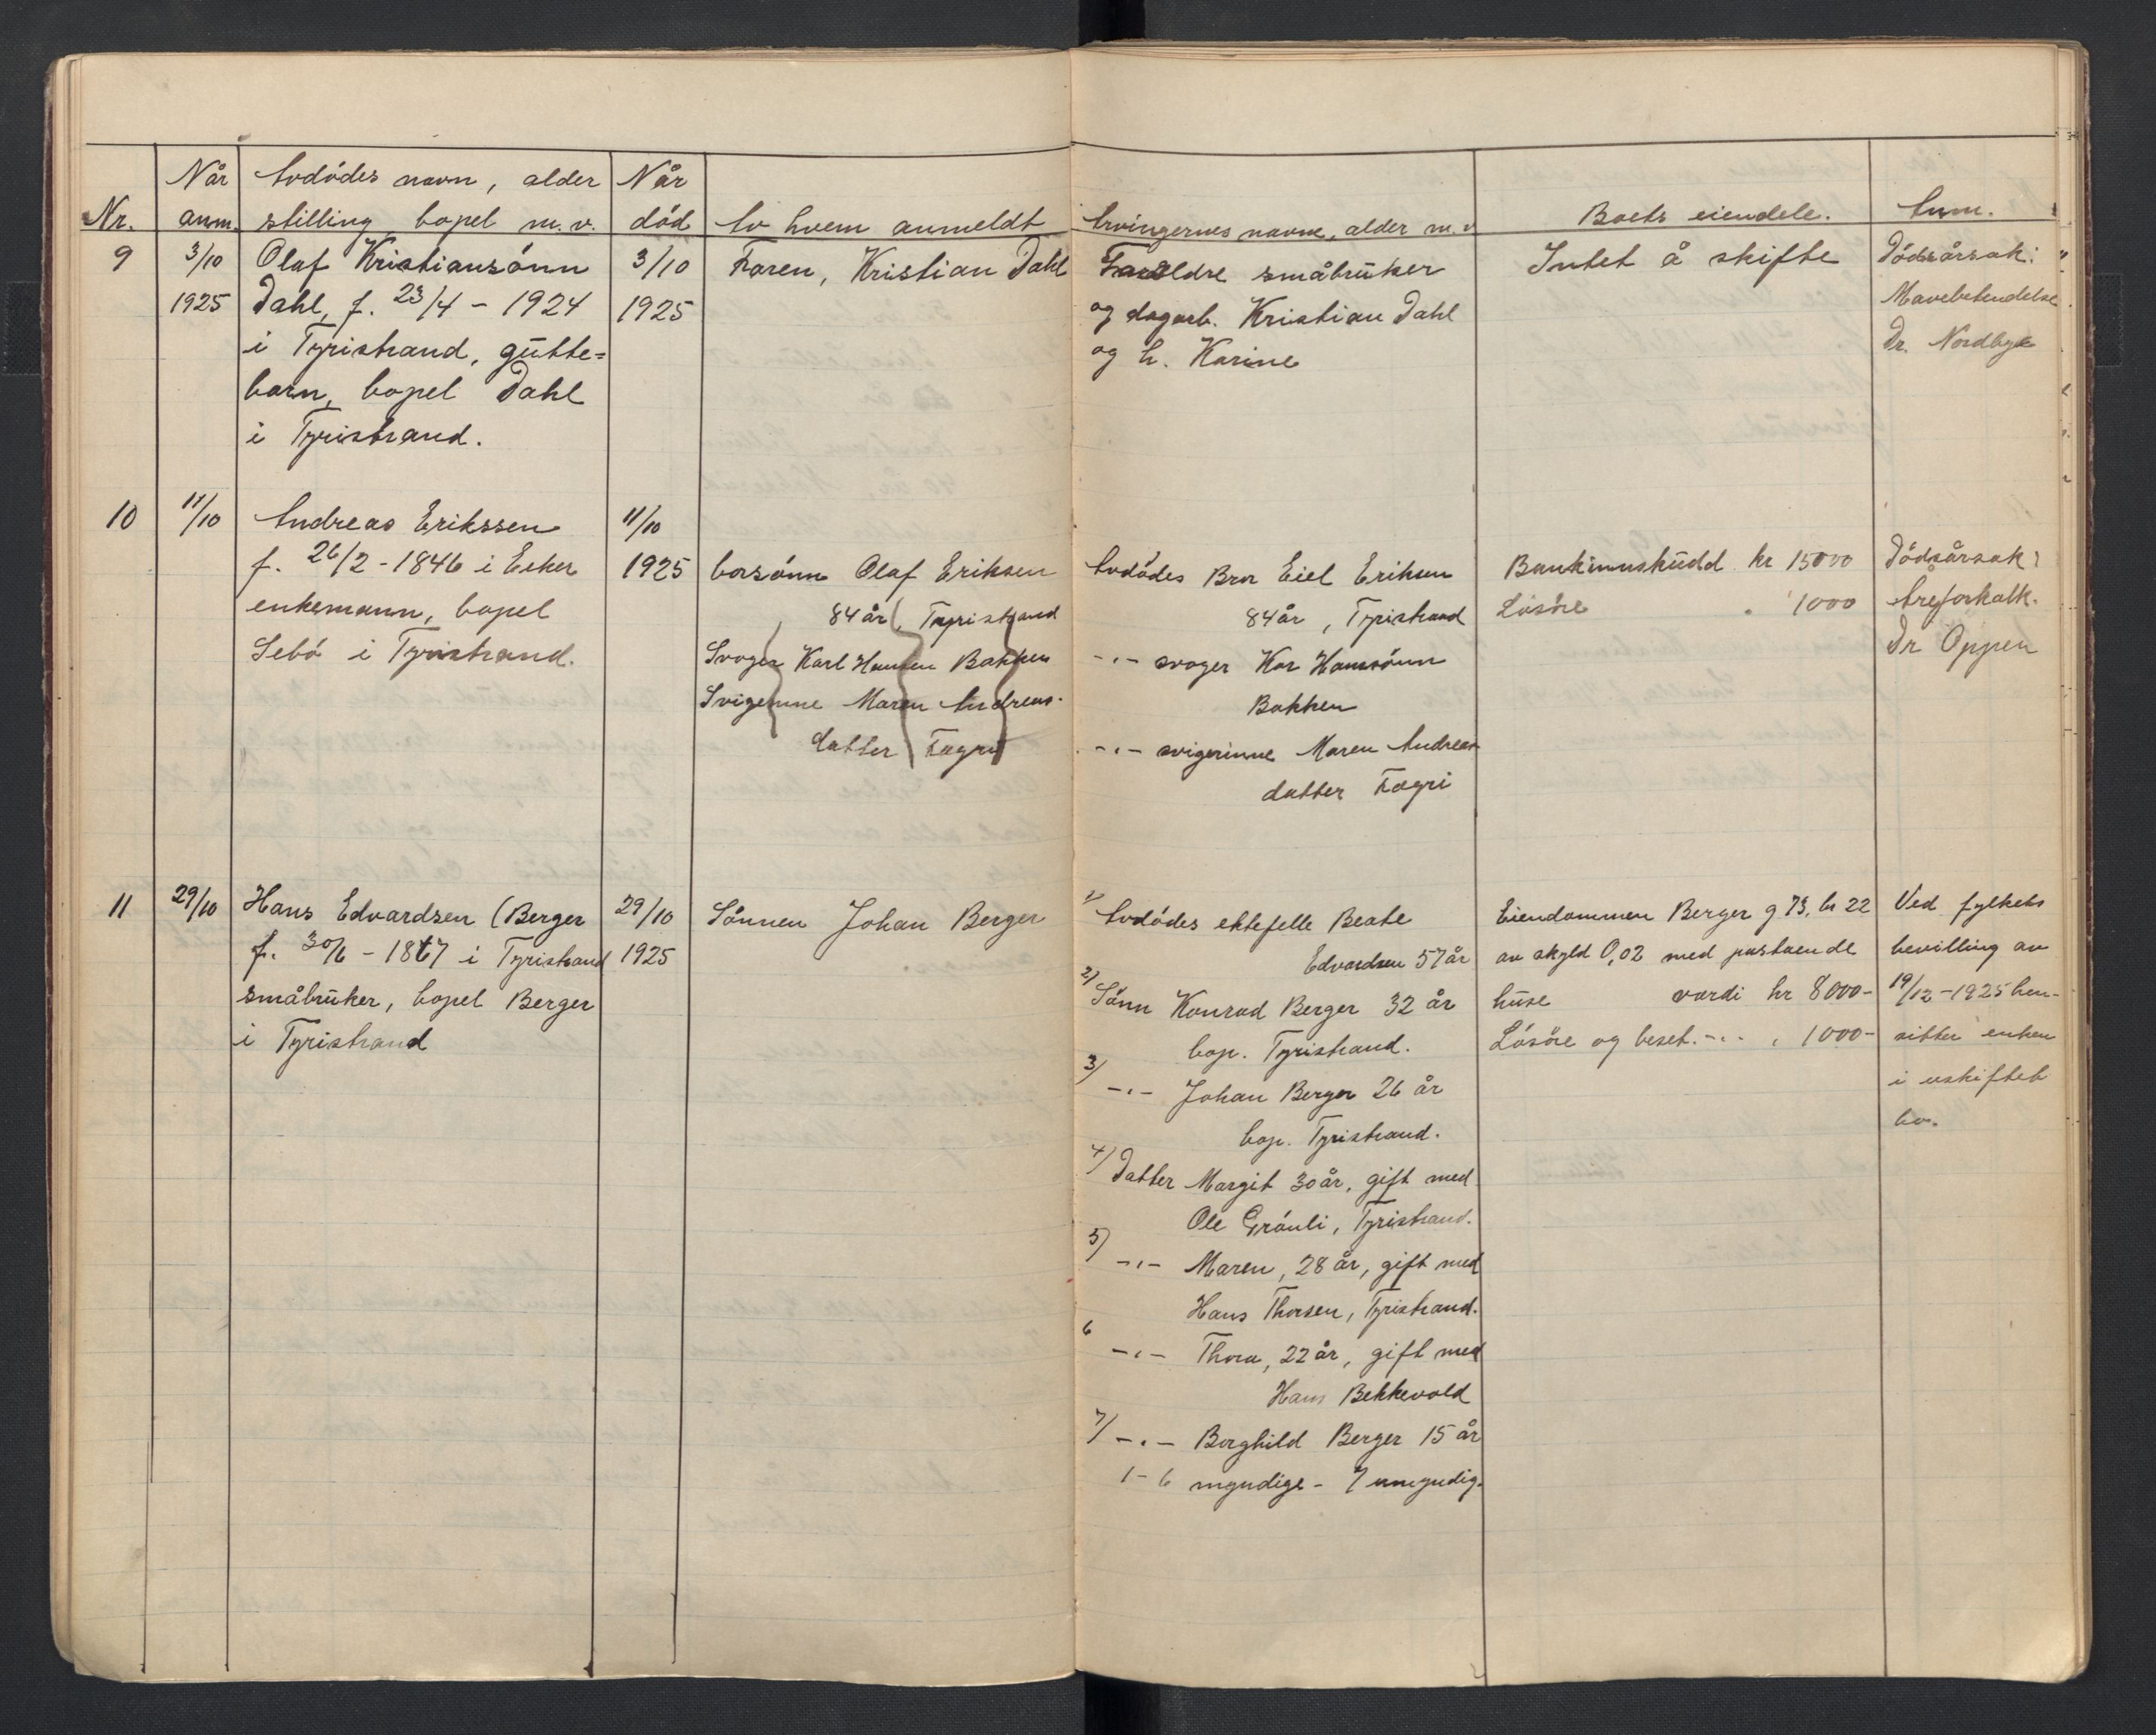 Når Avdödes navn, alder Når
Nr. anm. stilling bopel m. v. död Av hvem anmeldt Arvingernes navne, alder m. v. Boets eiendele. Anm.
9 3/10 Olaf Kristiansönn 3/10 Faren, Kristian Dahl Foreldre småbruker Intet å skifte Dödsårsak:
1925 Dahl, f. 23/4 - 1924 1925 og dagarb. Kristian Dahl Mavebetendelse
i Tyristrand, gutte= og h. Karine Dr. Nordbye
barn, bopel Dahl
i Tyristrand.
10 11/10 Andreas Erikssen 11/10
f. 26/2 - 1846 i Eeker 1925 brorsönn Olaf Eriksen Avdödes Bror Eiel Eriksen Bankinnskudd kr 15000 Dödsårsak:
enkemann, bopel 84 år, Tyristrand 84 år, Tyristrand Lösöre " 1000 Åreforkalk.
Sebö i Tyristrand. Svoger Karl Hansen Bakken -"- svoger Kar Hanssönn Dr Oppen
Svigerinne Maren Andreas- Bakken
datter Fægri -"- svigerinne Maren Andreas
datter Fægri
11 29/10 Hans Edvardsen (Berger 29/10 Sönnen Johan Berger 1) Avdödes ektefelle Beate Eiendommen Berger g 73, br 22 Ved fylkets
f. 30/6 - 1867 i Tyristrand 1925 Edvardsen 57 år av skyld 0,02 med påstående bevilling av
småbruker, bopel Berger 2) Sönn Konrad Berger 32 år huse verdi kr 8000- 19/12-1925 hen-
i Tyristrand bop. Tyristrand. Lösöre og beset. -"- " 1000- sitter enken
3) -"- Johan Berger 26 år i uskiftet
bop. Tyristrand. bo.
4) Datter Margit 30 år, gift med
Ole Grönli, Tyristrand.
5) -"- Maren, 28 år, gift med
Hans Thorsen, Tyristrand.
6 -"- Thora, 22 år, gift med
Hans Bekkevold
7) -"- Borghild Berger 15 år
1-6 myndige - 7 umyndig.